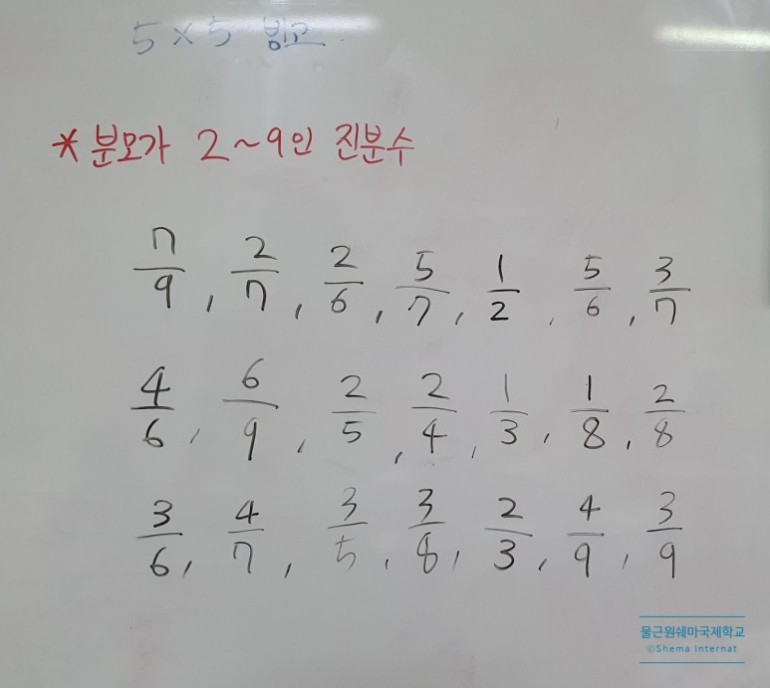 5 × 5 빙고
* 분모가 2~9인 진분수
7/9, 2/7, 2/6, 5/7, 1/2, 5/6, 3/7
4/6, 6/9, 2/5, 2/4, 1/3, 1/8, 2/8
3/6, 4/7, 3/5, 3/8, 2/3, 4/9, 3/9
물근원쉐마국제학교
©Shema Internat